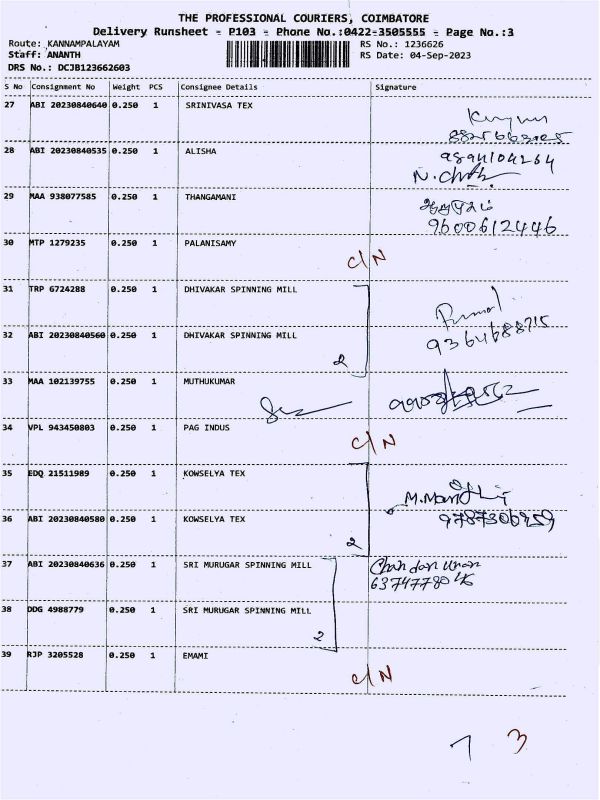 THE PROFESSIONAL COURIERS, COIMBATORE
Delivery Runsheet - P103 - Phone No.:0422-3505555 - Page No.:3
Route: KANNAMPALAYAM RS No.: 1236626
Staff: ANANTH RS Date: 04-Sep-2023
DRS No.: DCJB123662603
S No Consignment No Weight PCS Consignee Details Signature
27 ABI 20230840640 0.250 1 SRINIVASA TEX
28 ABI 20230840535 0.250 1 ALISHA
9894104264
29 MAA 938077585 0.250 1 THANGAMANI
9600612446
30 MTP 1279235 0.250 1 PALANISAMY
C/N
31 TRP 6724288 0.250 1 DHIVAKAR SPINNING MILL
32 ABI 20230840560 0.250 1 DHIVAKAR SPINNING MILL
9364688715
2
33 MAA 102139755 0.250 1 MUTHUKUMAR
34 VPL 943450803 0.250 1 PAG INDUS
C/N
35 EDQ 21511989 0.250 1 KOWSELYA TEX
36 ABI 20230840580 0.250 1 KOWSELYA TEX
9787306959
2
37 ABI 20230840636 0.250 1 SRI MURUGAR SPINNING MILL
38 DDG 4988779 0.250 1 SRI MURUGAR SPINNING MILL
2
39 RJP 3205528 0.250 1 EMAMI
C/N
7 3